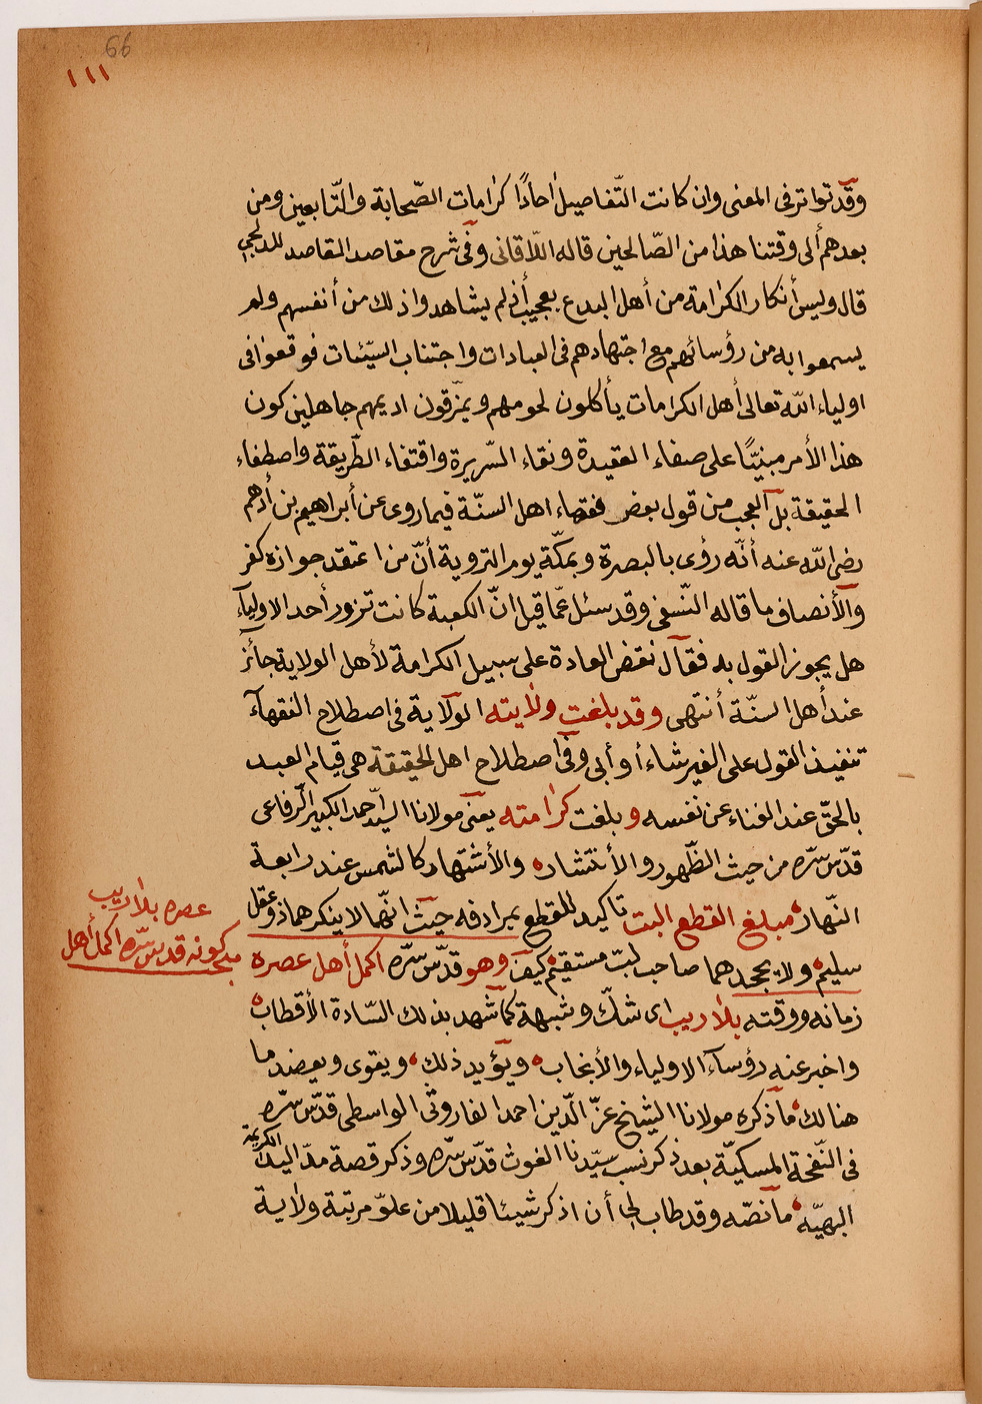 66
١١١
وقد تواتر فى المعنى وان كانت التّفاصيل أحادًا كرامات الصّحابة والتّابعين ومن
بعدهم ألى وقتنا هذا من الصّالحين قاله اللّاقانى وفى شرح مقاصد المقاصد للدلجى
قال وليس أنكار الكرامة من أهل البدع بعجيب أذ لم يشاهدوا ذلك من أنفسهم ولم
يسمعوا به من رؤسائهم مع اجتهادهم فى العبادات واجتناب السيّئات فوقعوا فى
اولياء الله تعالى أهل الكرامات يأكلون لحومهم ويمزّقون اديمهم جاهلين كون
هذا الأمر مبنيًّا على صفاء العقيدة ونقاء السّريرة واقتفاء الطّريقة واصطفاء
الحقيقة بل العجب من قول بعض فقهاء اهل السنّة فيما روى عن أبراهيم بن أدهم
رضى الله عنه أنّه رؤى بالبصرة وبمكّة يوم التروية أنّ من اعتقد جوازه كفر
والأنصاف ما قاله النّسفى وقد سئل عمّا قيل انّ الكعبة كانت تزور أحد الاولياء
هل يجوز القول به فقال نقض العادة على سبيل الكرامة لأهل الولاية جائز
عند أهل السنّة أنتهى وقد بلغت ولايته الولاية فى اصطلاح الفقهاء
تنفيذ القول على الغير شاء أو أبى وفى اصطلاح اهل الحقيقة هى قيام العبد
بالحقّ عند الفناء عن نفسه وبلغت كرامته يعنى مولانا السيّد احمد الكبير الرّفاعى
قدّس سرّه من حيث الظّهور والأنتشار والأشتهار كالشمس عند رابعة
النّهار مبلغ القطع البت تاكيد للقطع بمرادفه حيث انّهما لا ينكرهما ذو عقل
سليم ولا يجحدهما صاحب لبّ مستقيم كيف وهو قدّس سرّه اكمل أهل عصره
زمانه ووقته بلا ريب اى شكّ وشبهة كما شهد بذلك السّادة الأقطاب
واخبر عنه رؤساء الاولياء والأنجاب ويؤيد ذلك ويقوى ويعضد ما
هنالك ما ذكره مولانا الشيخ عزّ الدّين احمد الفاروثى الواسطى قدّس سرّه
فى النّفحة المسكيّة بعد ذكر نسب سيّدنا الغوث قدّس سرّه وذكر قصة مدّ اليد الكريمة
البهيّه ما نصّه وقد طاب لى أن اذكر شيئا قليلا من علوّ مرتبة ولاية
عصره بلا ريب
كونه قدس سرّه اكمل أهل